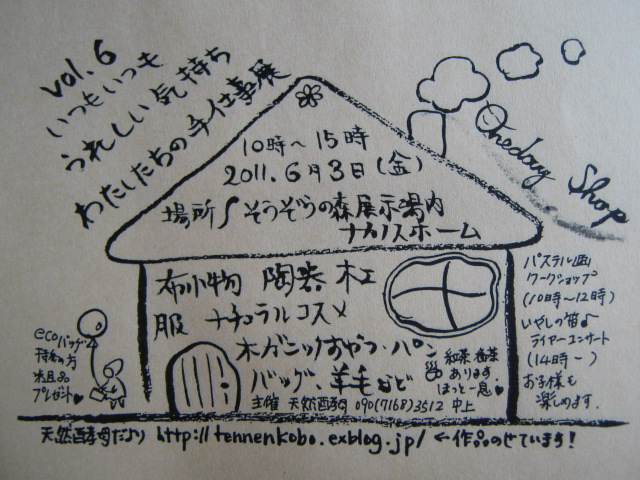 vol.6
いつもいつも
うれしい気持ち
わたしたちの手仕事展
Oneday Shop
10時～15時
2011.6月3日(金)
場所 そうぞうの森展示場内
ナカノスホーム
布小物 陶器 木工
服 ナチュラルコスメ
オーガニックおやつ・パン
バッグ、羊毛など
紅茶・番茶
あります
ほっと一息
主催 天然酵母 090(7168)3512 中上
パステル画
ワークショップ
(10時～12時)
いやしの笛♪
ライヤーコンサート
(14時～)
お子様も
楽しめます.
ecoバッグ
持参の方
粗品
プレゼント
天然酵母だより http://tennenkobo.exblog.jp/ ←作品のせています!